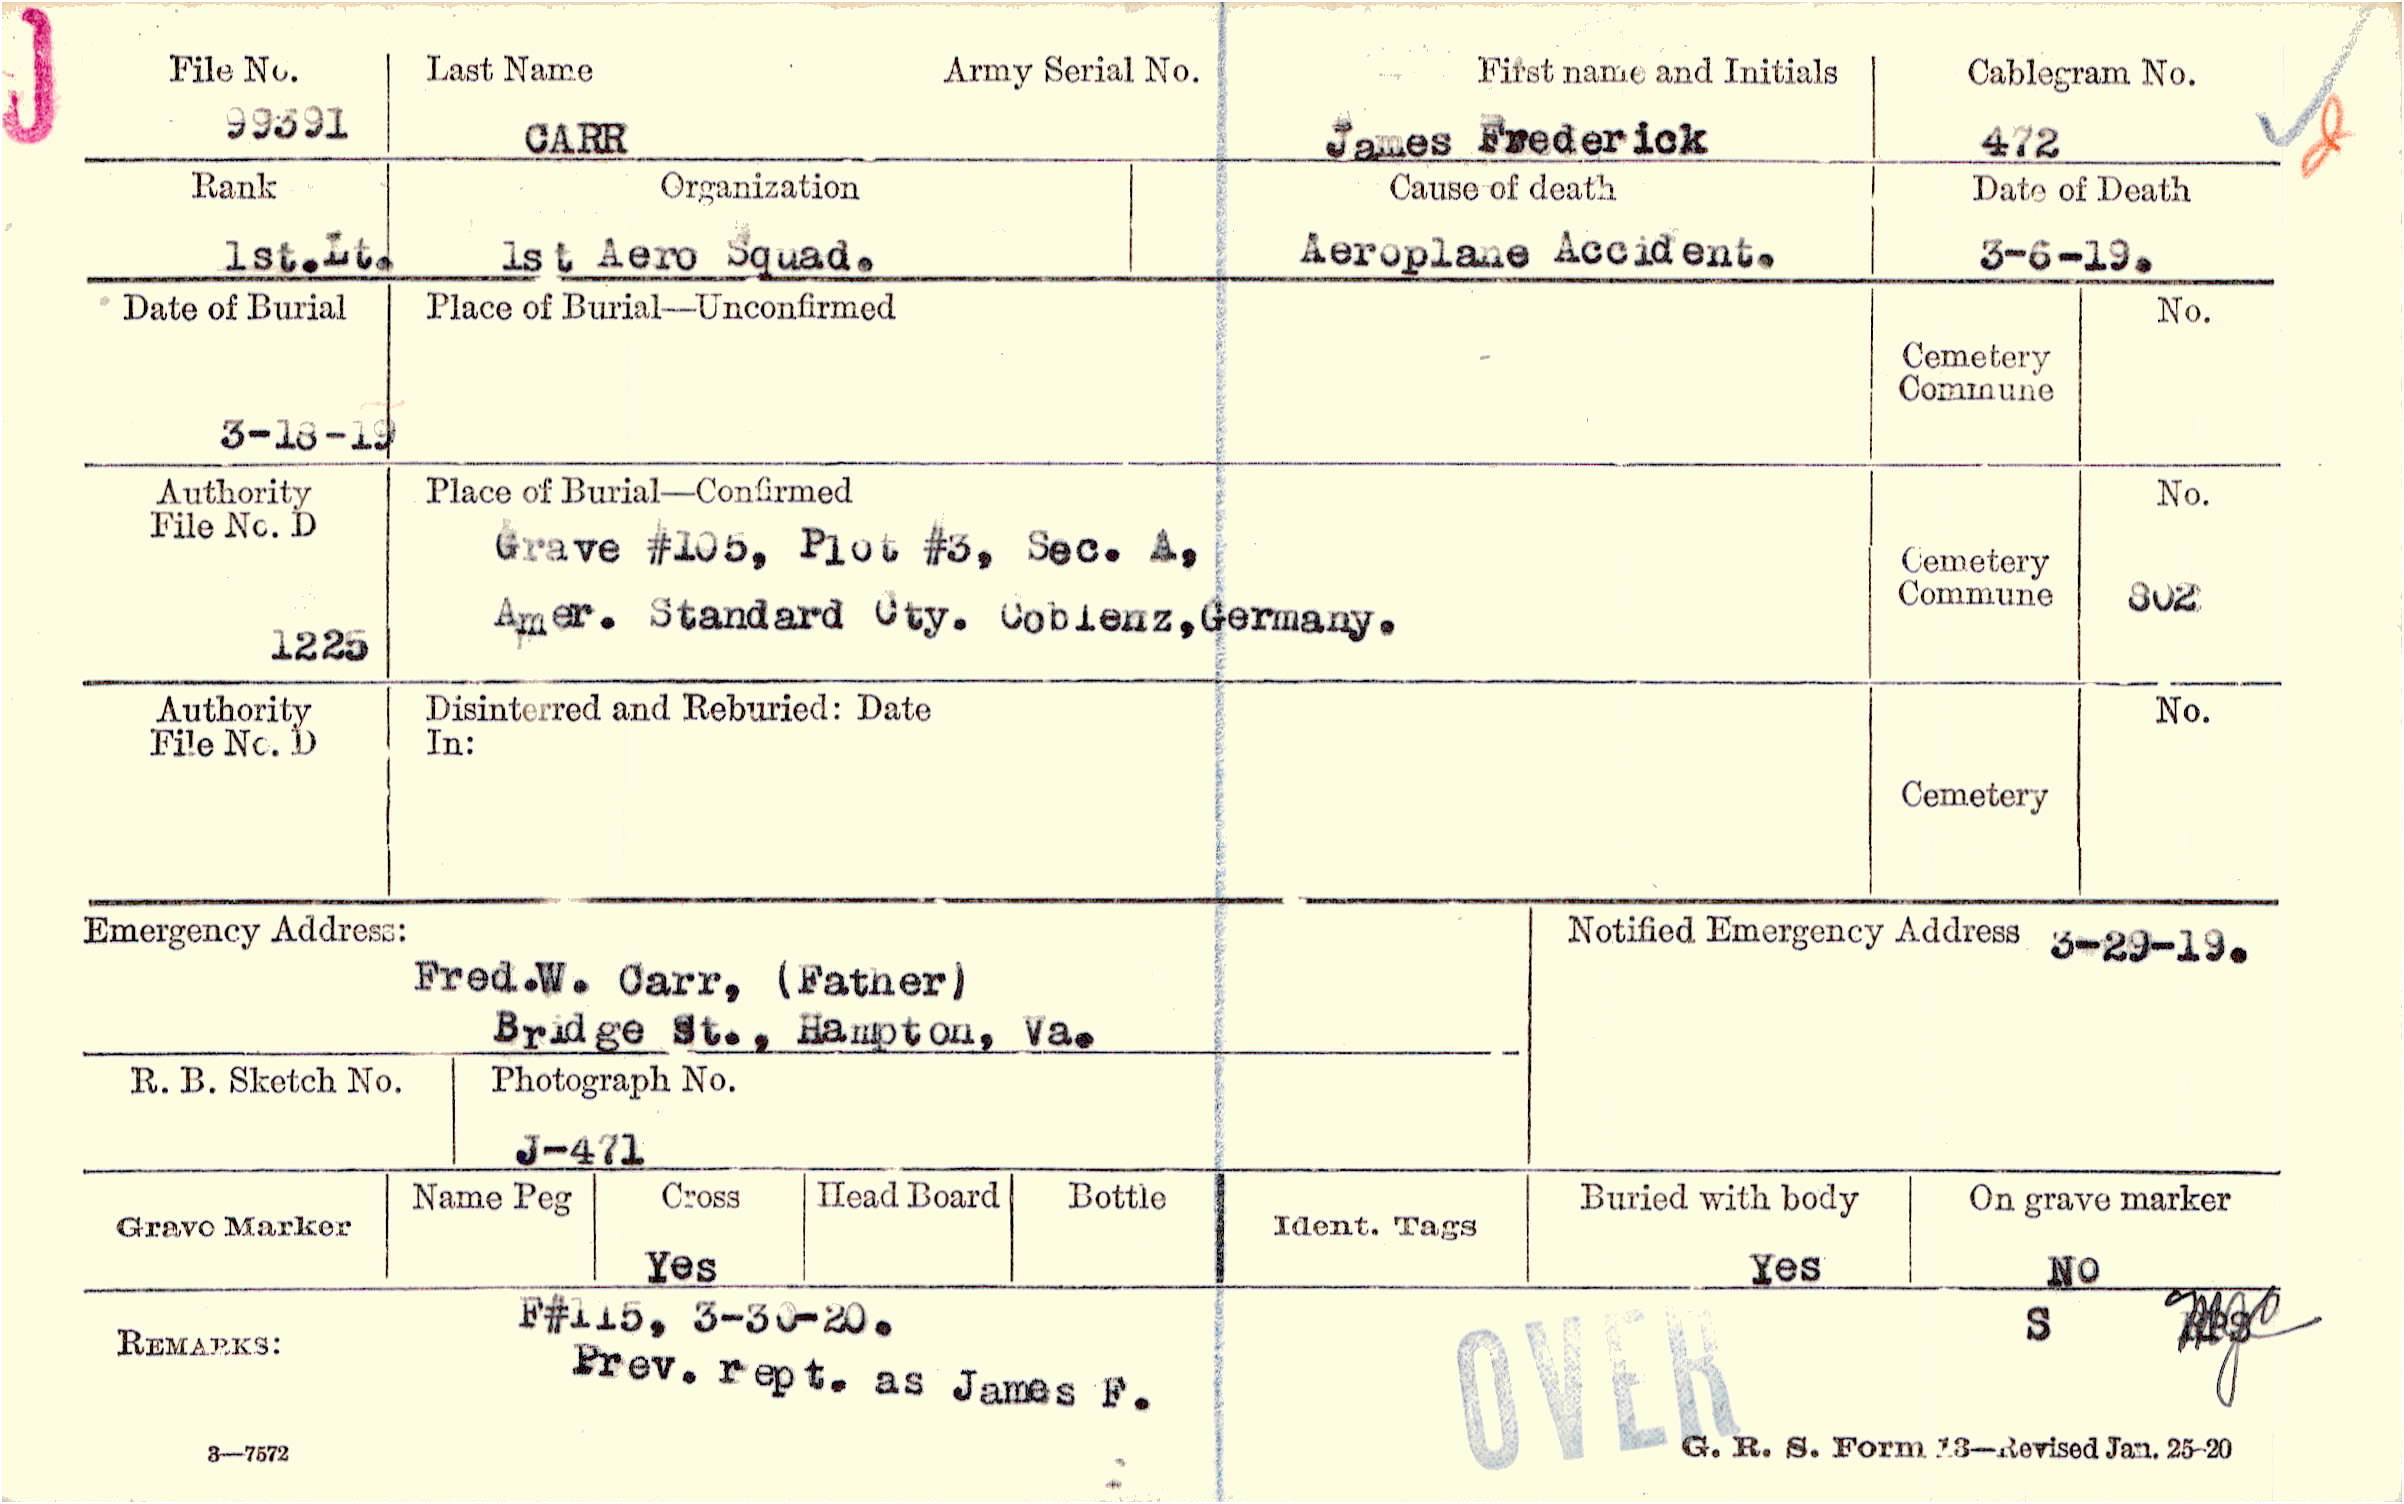 J
File No. Last Name Army Serial No. First name and Initials Cablegram No.
99391 CARR James Frederick 472
Rank Organization Cause of death Date of Death
1st.Lt. 1st Aero Squad. Aeroplane Accident. 3-6-19.
Date of Burial Place of Burial—Unconfirmed No.
Cemetery
Commune
3-18-19
Authority Place of Burial—Confirmed No.
File No. D
Grave #105, Plot #3, Sec. A,
Cemetery
Commune 802
Amer. Standard Cty. Coblenz,Germany.
1225
Authority Disinterred and Reburied: Date No.
File No. D In:
Cemetery
Emergency Address: Notified Emergency Address 3-29-19.
Fred.W. Carr, (Father)
Bridge St., Hampton, Va.
R. B. Sketch No. Photograph No.
J-471
Grave Marker Name Peg Cross Head Board Bottle Ident. Tags Buried with body On grave marker
Yes Yes No
REMARKS: F#115, 3-30-20. S
Prev. rept. as James F.
OVER
3—7572 G. R. S. Form 13—Revised Jan. 25-20